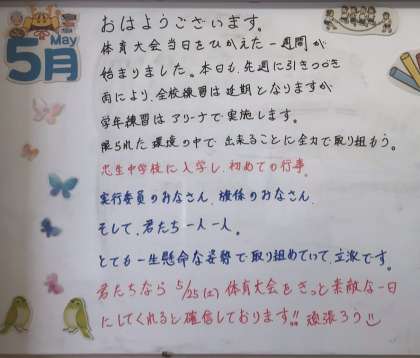 May
5月
おはようございます。
体育大会当日をひかえた一週間が
始まりました。本日も、先週に引きつづき
雨により、全校練習は延期となりますが
学年練習はアリーナで実施します。
限られた環境の中で出来ることに全力で取り組もう。
忠生中学校に入学し、初めての行事。
実行委員のみなさん、旗係のみなさん、
そして、君たち一人一人。
とても一生懸命な姿勢で取り組めていて、立派です。
君たちなら 5/25(土) 体育大会をきっと素敵な一日
にしてくれると確信しております!! 頑張ろう